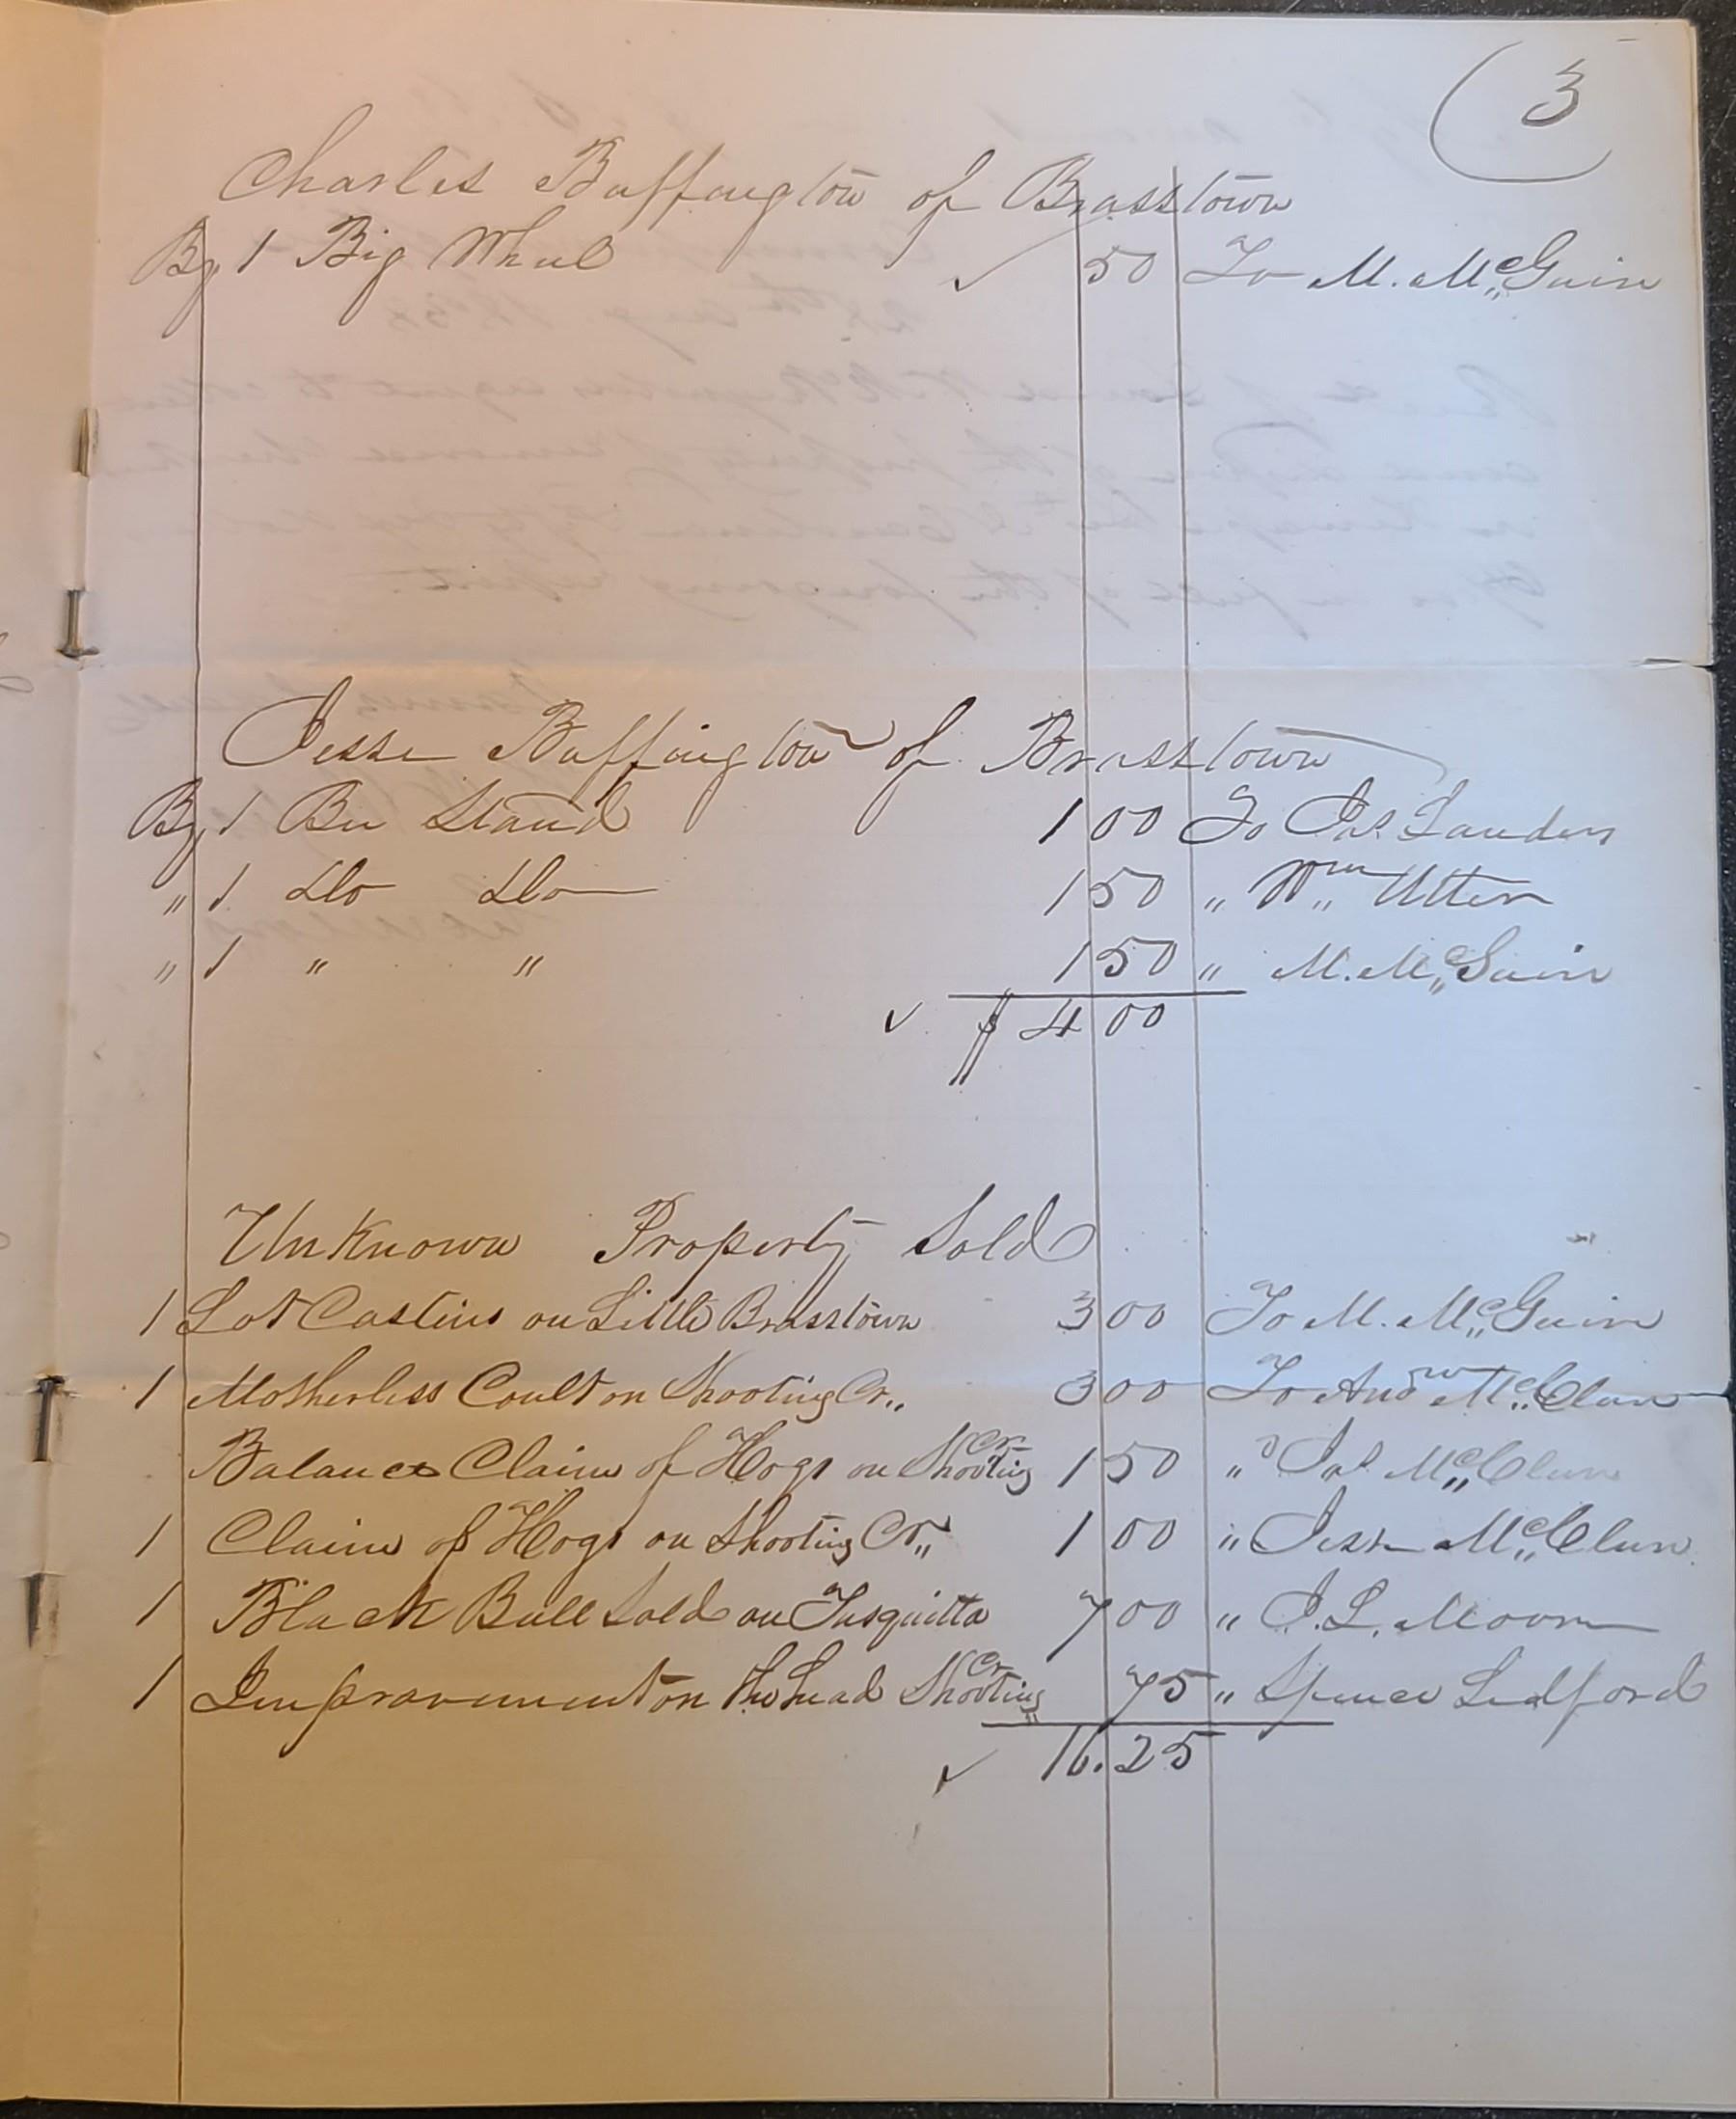 3
Charles Buffington of Brasstown
By 1 Big Wheel 50 To M. McGuire
Jesse Buffington of Brasstown
By 1 Bee Stand 1 00 To Jas. Sanders
" 1 Do Do 1 50 " Wm Utter
" 1 " " 1 50 " M. McGuire
$ 4 00
Unknown Property Sold
1 Lot Castins on Little Brasstown 3 00 To M. McGuire
1 Motherless Coult on Shooting Cr,, 3 00 To Andw McClure
Balance Claim of Hogs on Shooting Cr 1 50 " Jas McClure
1 Claim of Hogs on Shooting Cr,, 1 00 " Jesse McClure
1 Black Bull Sold on Tusquitta 7 00 " J. L. Moore
1 Improvement on the head Shooting Cr 75 " Spence Ledford
16.25